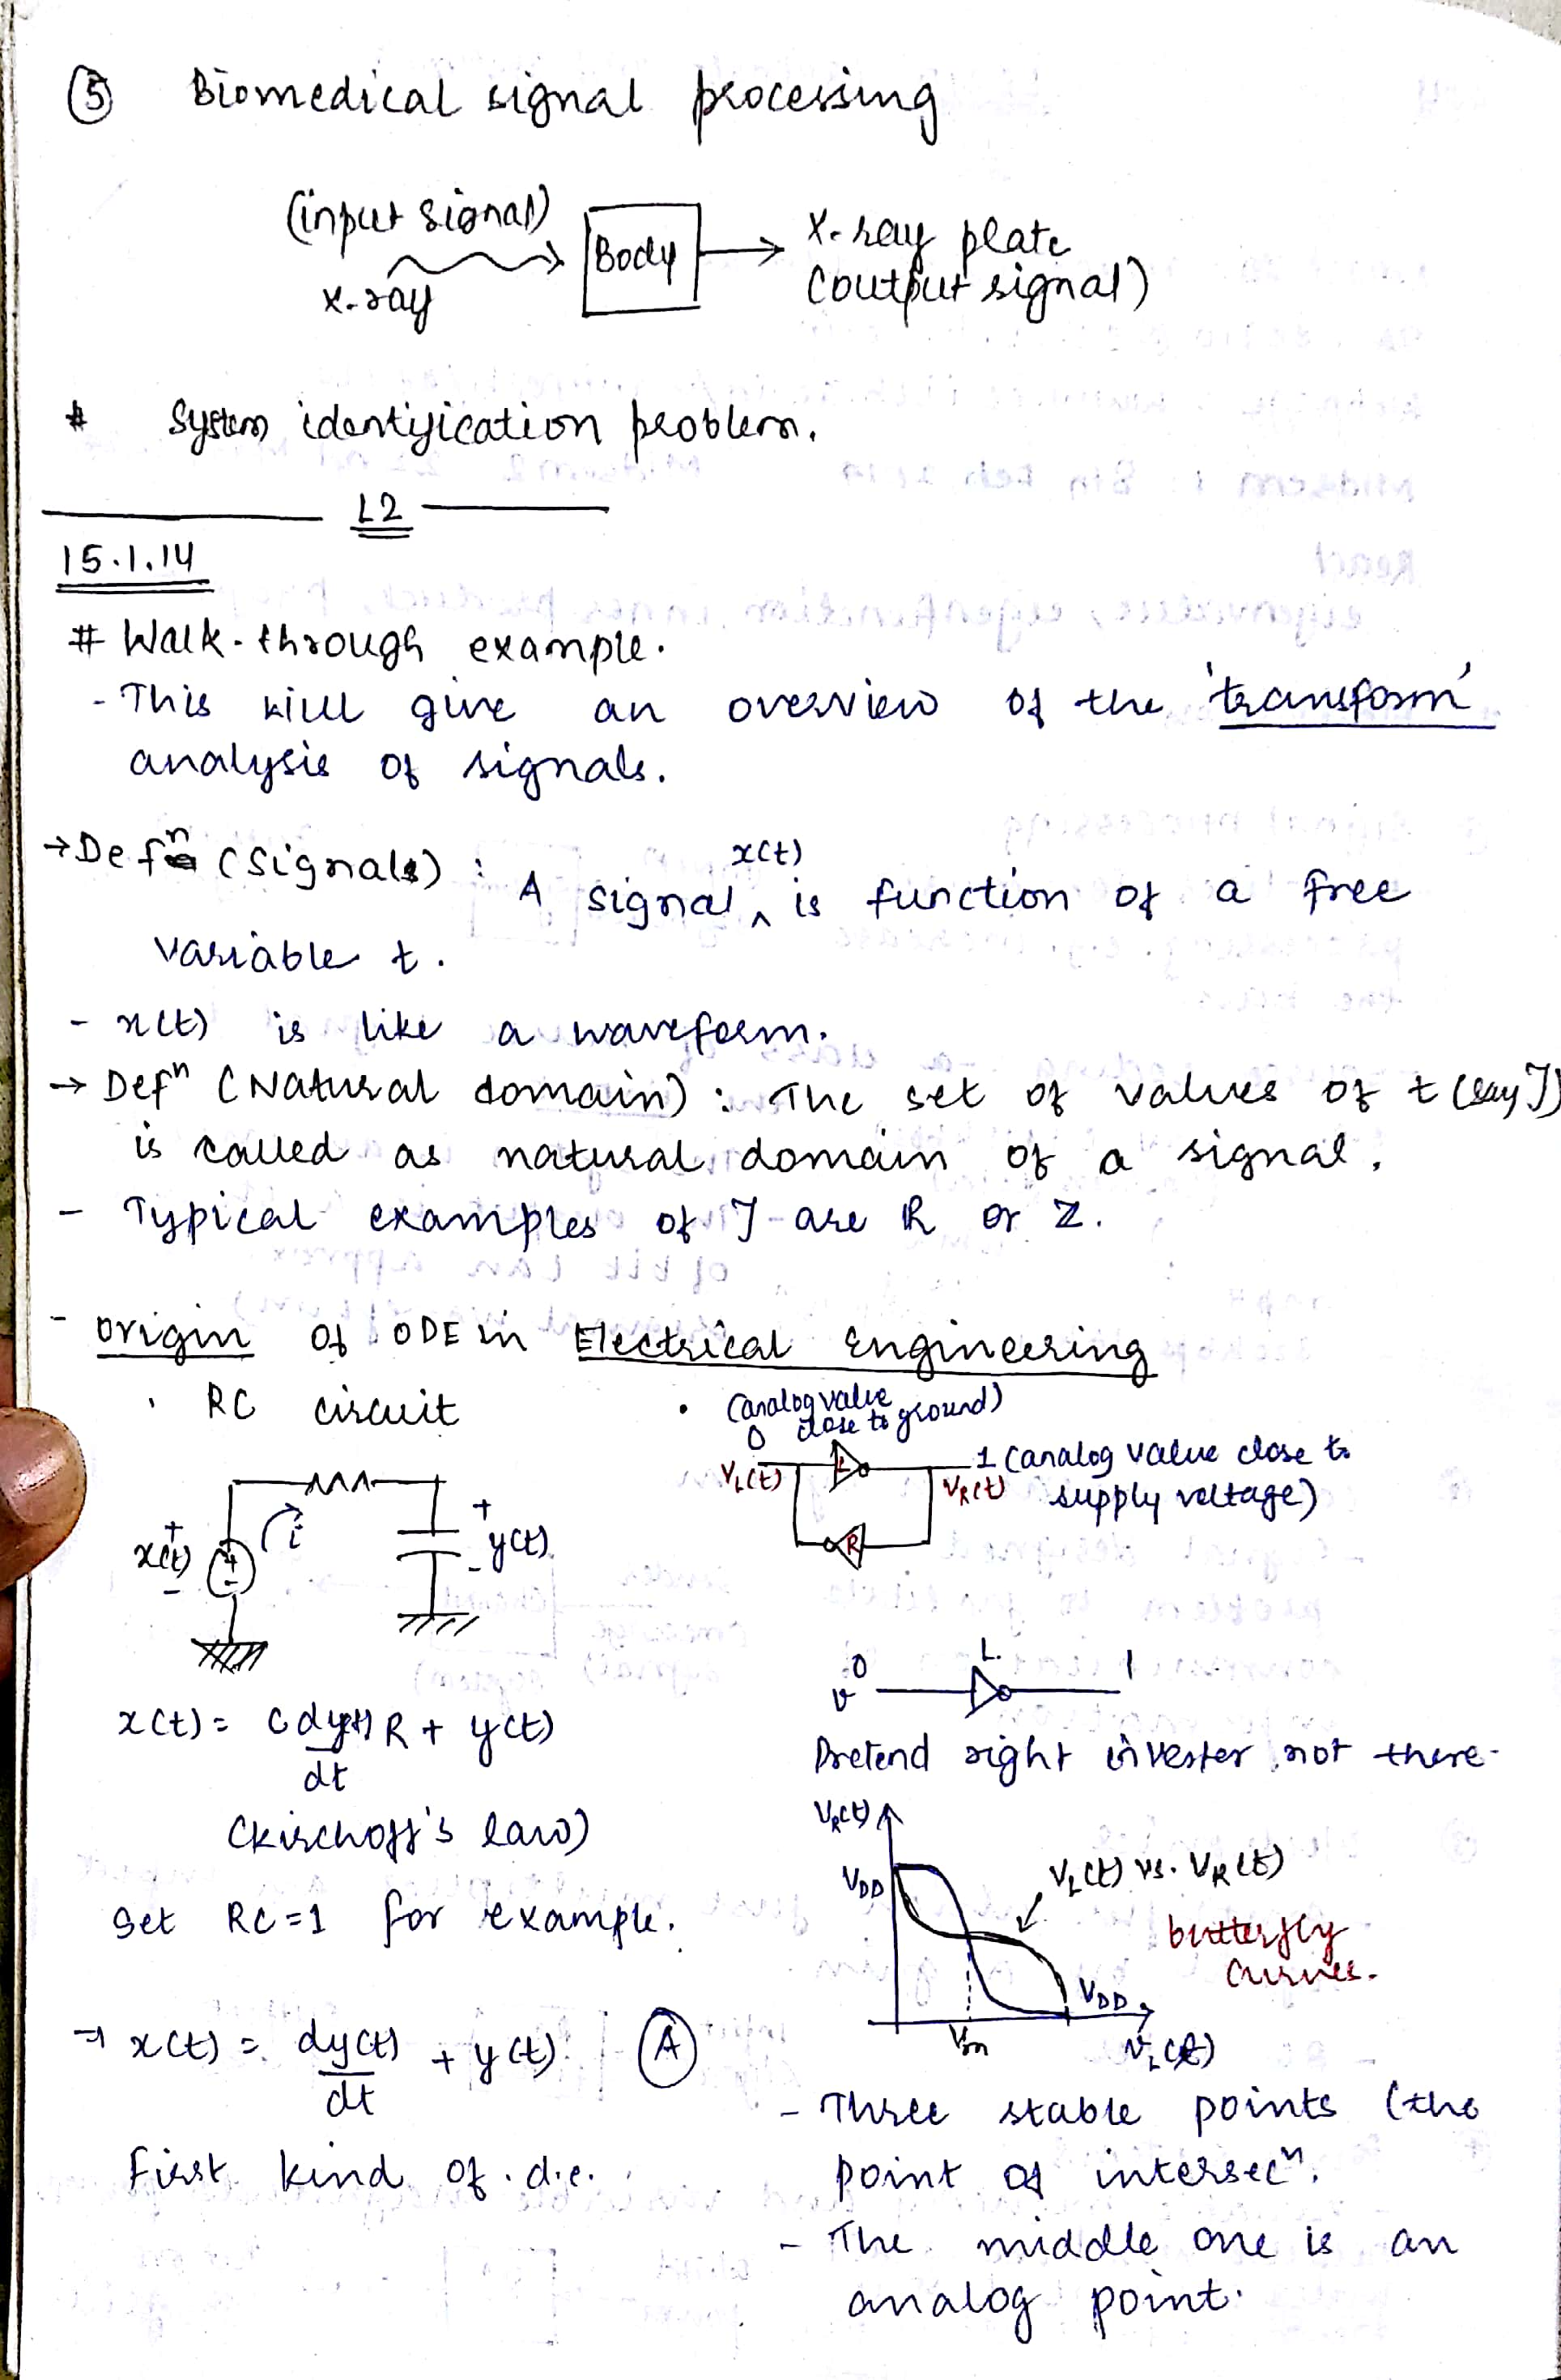 ⑤ Biomedical signal processing
(input signal)
x-ray
Body
X-ray plate
(output signal)
* System identification problem.
L2
15.1.14
# Walk-through example.
- This will give an overview of the 'transform'
analysis of signals.
→ Defⁿ (signals) : A signal ^ x(t) is function of a free
variable t.
- x(t) is like a waveform.
→ Defⁿ (Natural domain) : The set of values of t (say J)
is called as natural domain of a signal.
- Typical examples of J are ℝ or ℤ.
- origin of ODE in Electrical Engineering
· RC circuit
x(t)
+
-
i
+
-
y(t)
x(t) = C dy(t)/dt R + y(t)
(Kirchoff's law)
Set RC=1 for example.
⇒ x(t) = dy(t)/dt + y(t) Ⓐ
First kind of d.e.
• (analog value
0 close to ground)
VL(t)
L
VR(t)
R
1 (analog value close to
supply voltage)
0
v
L
1
Pretend right inverter not there.
VR(t)
VDD
VL(t) vs. VR(t)
butterfly
curves.
VDD
Vm
VL(t)
- Three stable points (the
point of intersecⁿ.
- The middle one is an
analog point.